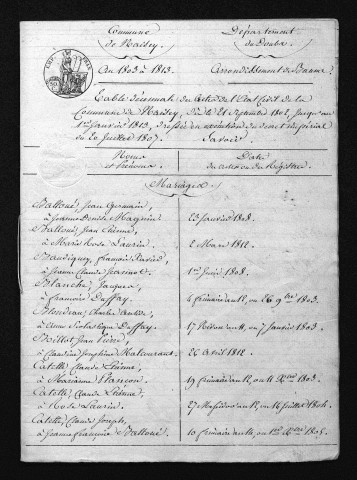 Commune
de Naisey
Département
du Doubs
An 1803 à 1813.
Arrondissement de Baume
Table décennale des actes de l'Etat Civil de la
Commune de Naisey, du 21 Septembre 1802, jusqu'au
1er Janvier 1813, dressée en exécution du décret impérial
du 20 Juillet 1807.
Savoir
Noms
et Prénoms
Date
des actes ou des Registres
Mariages
Balloué, Jean Germain,
à Jeanne Denise Magnin
23 Janvier 1808.
Balloué, Jean Etienne,
à Marie Rose Laurin
2 Mars 1812.
à Jeanne Claude Jeannot
1er Février 1808.
Blanche, Jacques,
à Françoise Deffay
4 frimaire an 12, ou 26 9bre 1803.
Blondeau, Charles
à Anne Scolastique Deffay.
17 Nivose an 11, ou 7 Janvier 1803.
Billot Jean Pierre,
à Claudine Josephine
26 Avril 1812.
Catelle, Claude Etienne,
à Marianne Plançon
19 frimaire an 12, ou 11 Xbre 1803.
Catelle, Claude Etienne,
à Rose Laurin
27 Messidor an 12, ou 16 Juillet 1804.
Catelle, Claude Joseph,
à Jeanne Françoise Balloué.
10 frimaire an 14, ou 1er Xbre 1805.